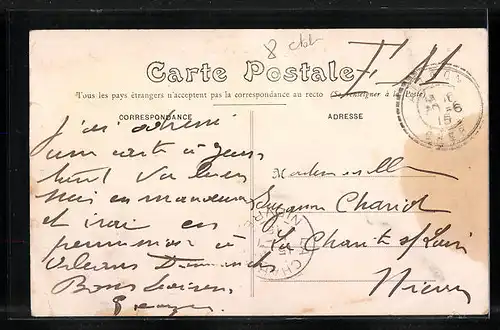 F M
Carte Postale
Tous les pays étrangers n'acceptent pas la correspondance au recto (Se renseigner à la Poste)
CORRESPONDANCE
ADRESSE
J'ai
une carte à
tout va bien
suis en manoeuvre
et irai en
permission à
Orléans Dimanche
Bons baisers
Georges
Mademoiselle
Suzanne Chariot
La Charité s/ Loire
Nièvre